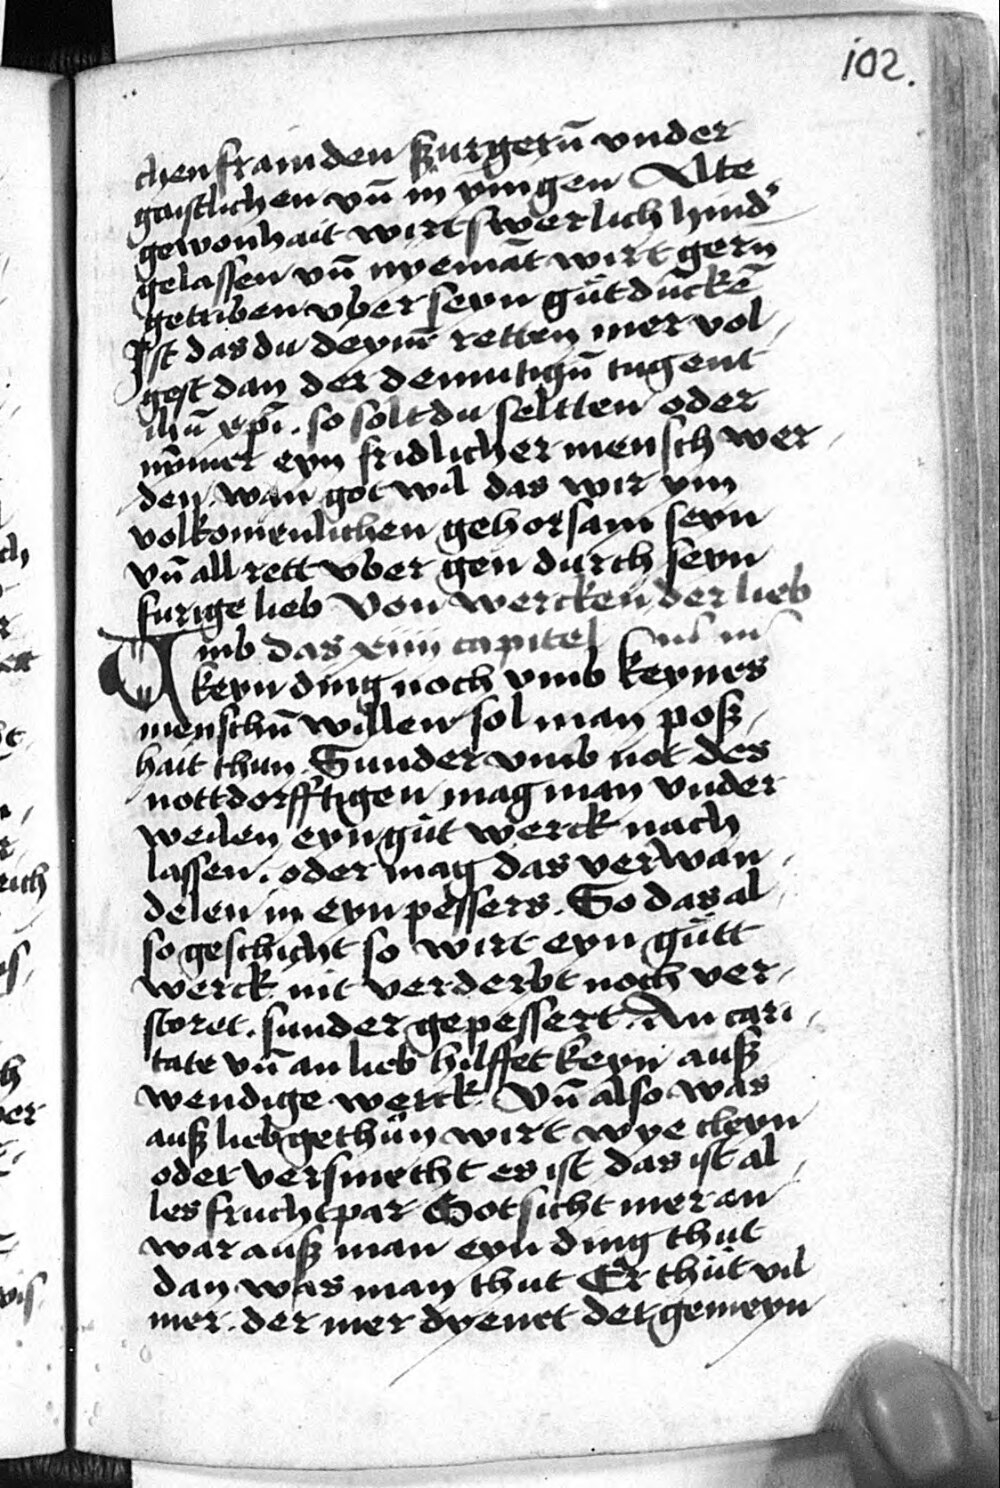 102.
chen framden kurgern̄ vnder
gaistlichen vn̄ in yingen Alte
gewonhait wirt swerlich hind'
gelassen vn̄ nyemāt wirt gern
getriben vber seyn gůtduncke͞
Ist das du deym̄ retten mer vol
gest dan der demutign̄ tugent
ihū xp̄i. so solt du seltten oder
nȳmer eyn fridlicher mensch wer
den. wan got wil das wir ym
volkomenlichen gehorsam seyn
vn̄ all rett vber gen durch seyn
furige lieb Von wercken der lieb
das xiiij capitel
Vmb keyn ding noch vmb keynes
menschn̄ willen sol man posz
hait thun. Sunder vmb not des
nottdorfftigen mag man vnder
weilen eyn gůt werck nach
lassen. oder mag das verwan
delen in eyn pessers. So das al
so geschicht so wirt eyn gůtt
werck nit verderbt noch ver
storet. sunder gepessert. An cari
tate vn̄ an lieb hilffet keyn ausz
wendige werck. Vn̄ also was
ausz lieb gethůn wirt wye cleyn
oder versmecht es ist das ist al
les fruchtpar Got sicht mer an
war ausz man eyn ding thut
dan was man thut Er thůt vil
mer. der mer dyenet der gemeyn